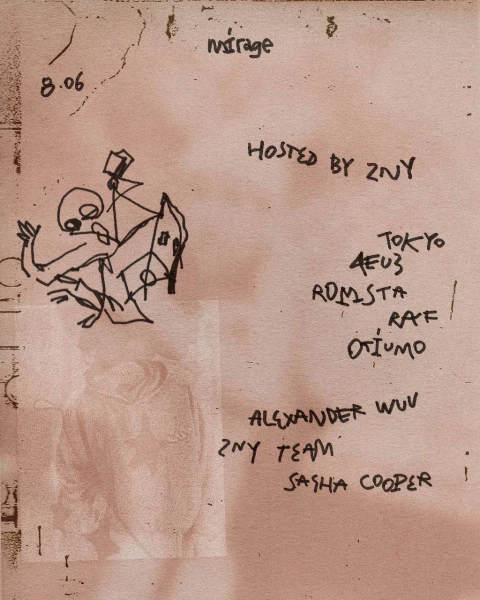 mirage
8.06
HOSTED BY ZNY
TOKYO
4EU3
ROMISTA
RAYF
OTIUMO
ALEXANDER WUU
ZNY TEAM
SASHA COOPER